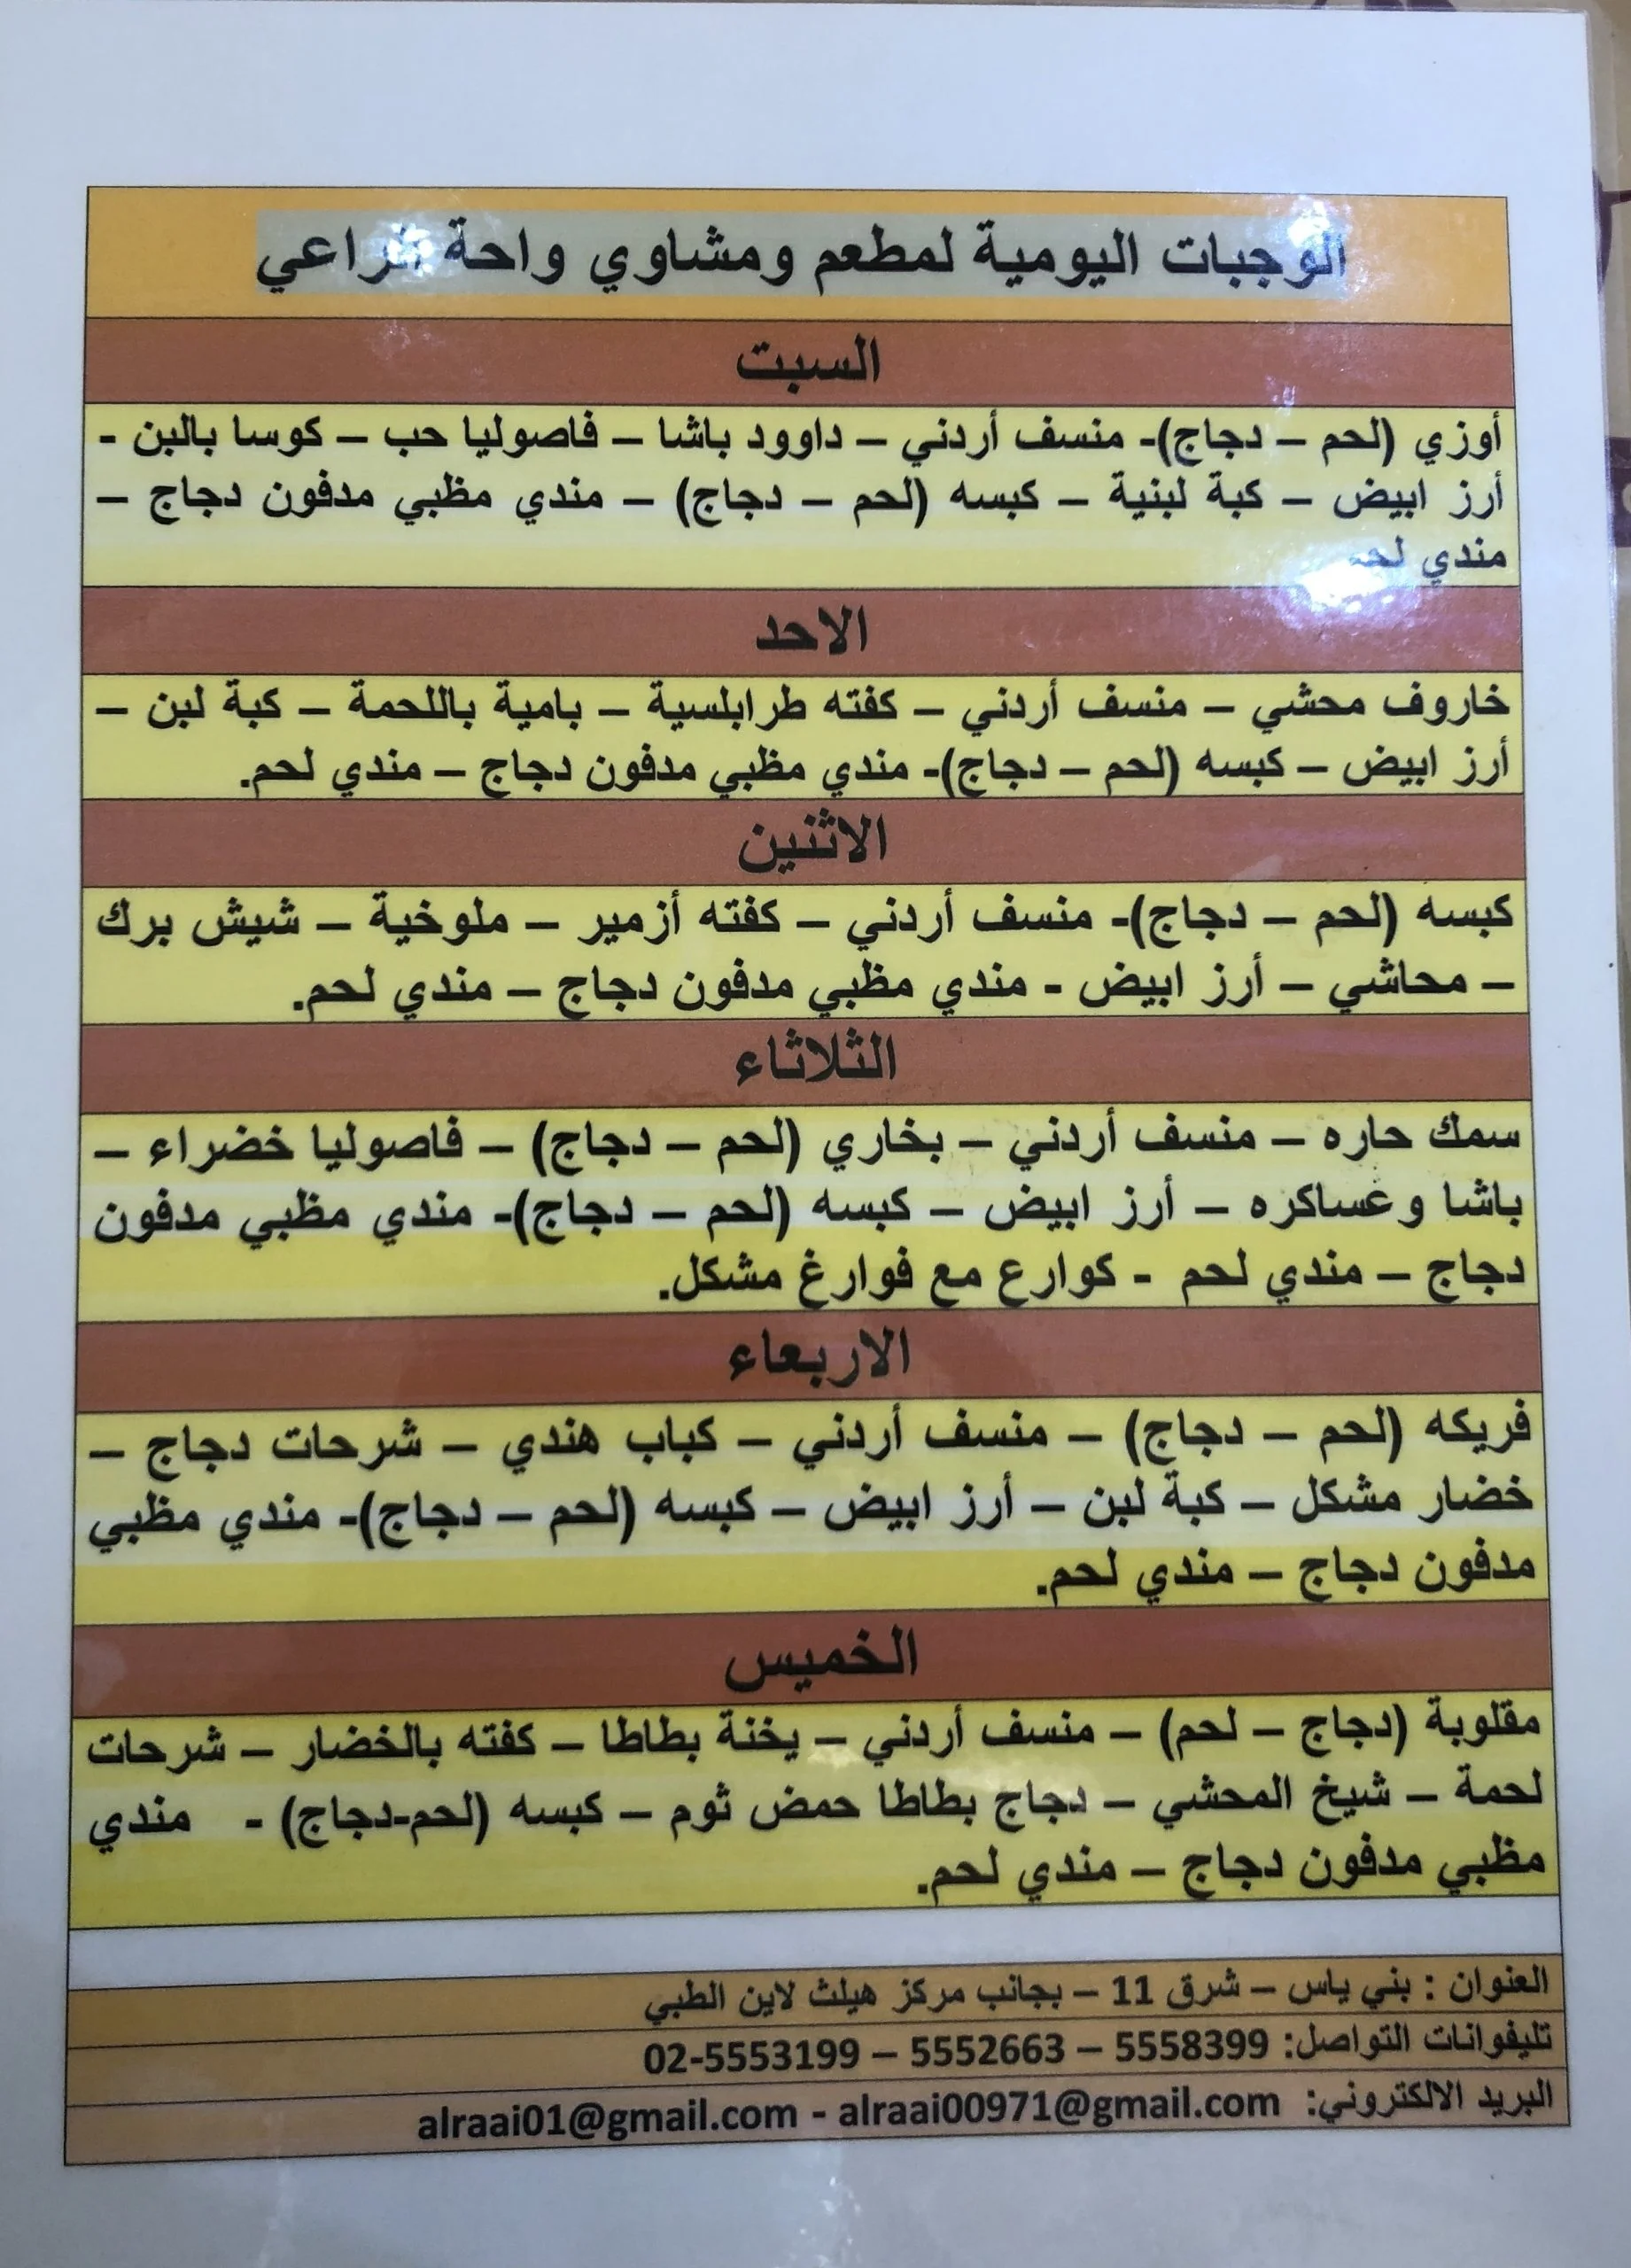 الوجبات اليومية لمطعم ومشاوي واحة الراعي
السبت
أوزي (لحم – دجاج)- منسف أردني – داوود باشا – فاصوليا حب – كوسا بالبن -
أرز ابيض – كبة لبنية – كبسه (لحم – دجاج) – مندي مظبي مدفون دجاج –
مندي لحم
الاحد
خاروف محشي – منسف أردني – كفته طرابلسية – بامية باللحمة – كبة لبن –
أرز ابيض – كبسه (لحم – دجاج)- مندي مظبي مدفون دجاج – مندي لحم.
الاثنين
كبسه (لحم – دجاج)- منسف أردني – كفته أزمير – ملوخية – شيش برك
– محاشي – أرز ابيض - مندي مظبي مدفون دجاج – مندي لحم.
الثلاثاء
سمك حاره – منسف أردني – بخاري (لحم – دجاج) – فاصوليا خضراء –
باشا وعساكره – أرز ابيض – كبسه (لحم – دجاج)- مندي مظبي مدفون
دجاج – مندي لحم - كوارع مع فوارغ مشكل.
الاربعاء
فريكه (لحم – دجاج) – منسف أردني – كباب هندي – شرحات دجاج –
خضار مشكل – كبة لبن – أرز ابيض – كبسه (لحم – دجاج)- مندي مظبي
مدفون دجاج – مندي لحم.
الخميس
مقلوبة (دجاج – لحم) – منسف أردني – يخنة بطاطا – كفته بالخضار – شرحات
لحمة – شيخ المحشي – دجاج بطاطا حمض ثوم – كبسه (لحم-دجاج) - مندي
مظبي مدفون دجاج – مندي لحم.
العنوان : بني ياس – شرق 11 – بجانب مركز هيلث لاين الطبي
تليفوانات التواصل: 5558399 – 5552663 – 02-5553199
البريد الالكتروني: alraai01@gmail.com - alraai00971@gmail.com